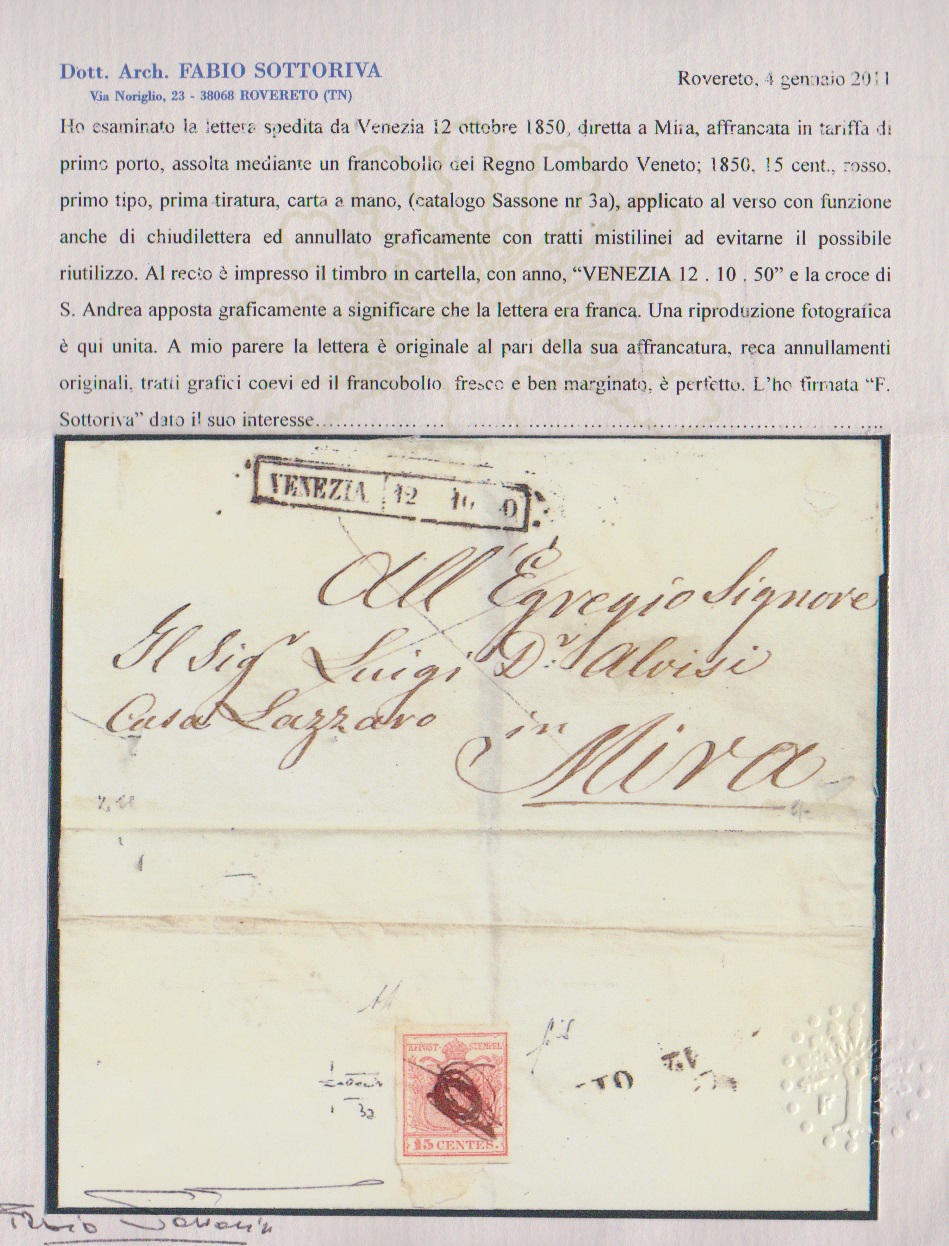 Dott. Arch. FABIO SOTTORIVA
Via Noriglio, 23 - 38068 ROVERETO (TN)
Rovereto, 4 gennaio 2011
Ho esaminato la lettera spedita da Venezia 12 ottobre 1850, diretta a Mira, affrancata in tariffa di
primo porto, assolta mediante un francobollo del Regno Lombardo Veneto; 1850, 15 cent., rosso,
primo tipo, prima tiratura, carta a mano, (catalogo Sassone nr 3a), applicato al verso con funzione
anche di chiudilettera ed annullato graficamente con tratti mistilinei ad evitarne il possibile
riutilizzo. Al recto è impresso il timbro in cartella, con anno, “VENEZIA 12 . 10 . 50” e la croce di
S. Andrea apposta graficamente a significare che la lettera era franca. Una riproduzione fotografica
è qui unita. A mio parere la lettera è originale al pari della sua affrancatura, reca annullamenti
originali, tratti grafici coevi ed il francobollo, fresco e ben marginato, è perfetto. L'ho firmata “F.
Sottoriva” dato il suo interesse
VENEZIA 12 10 0
All' Egregio Signore
Il Sigr Luigi Dr. Alvisi
Casa Lazzaro in
Mira
POST-STEMPEL
15 CENTES.
F